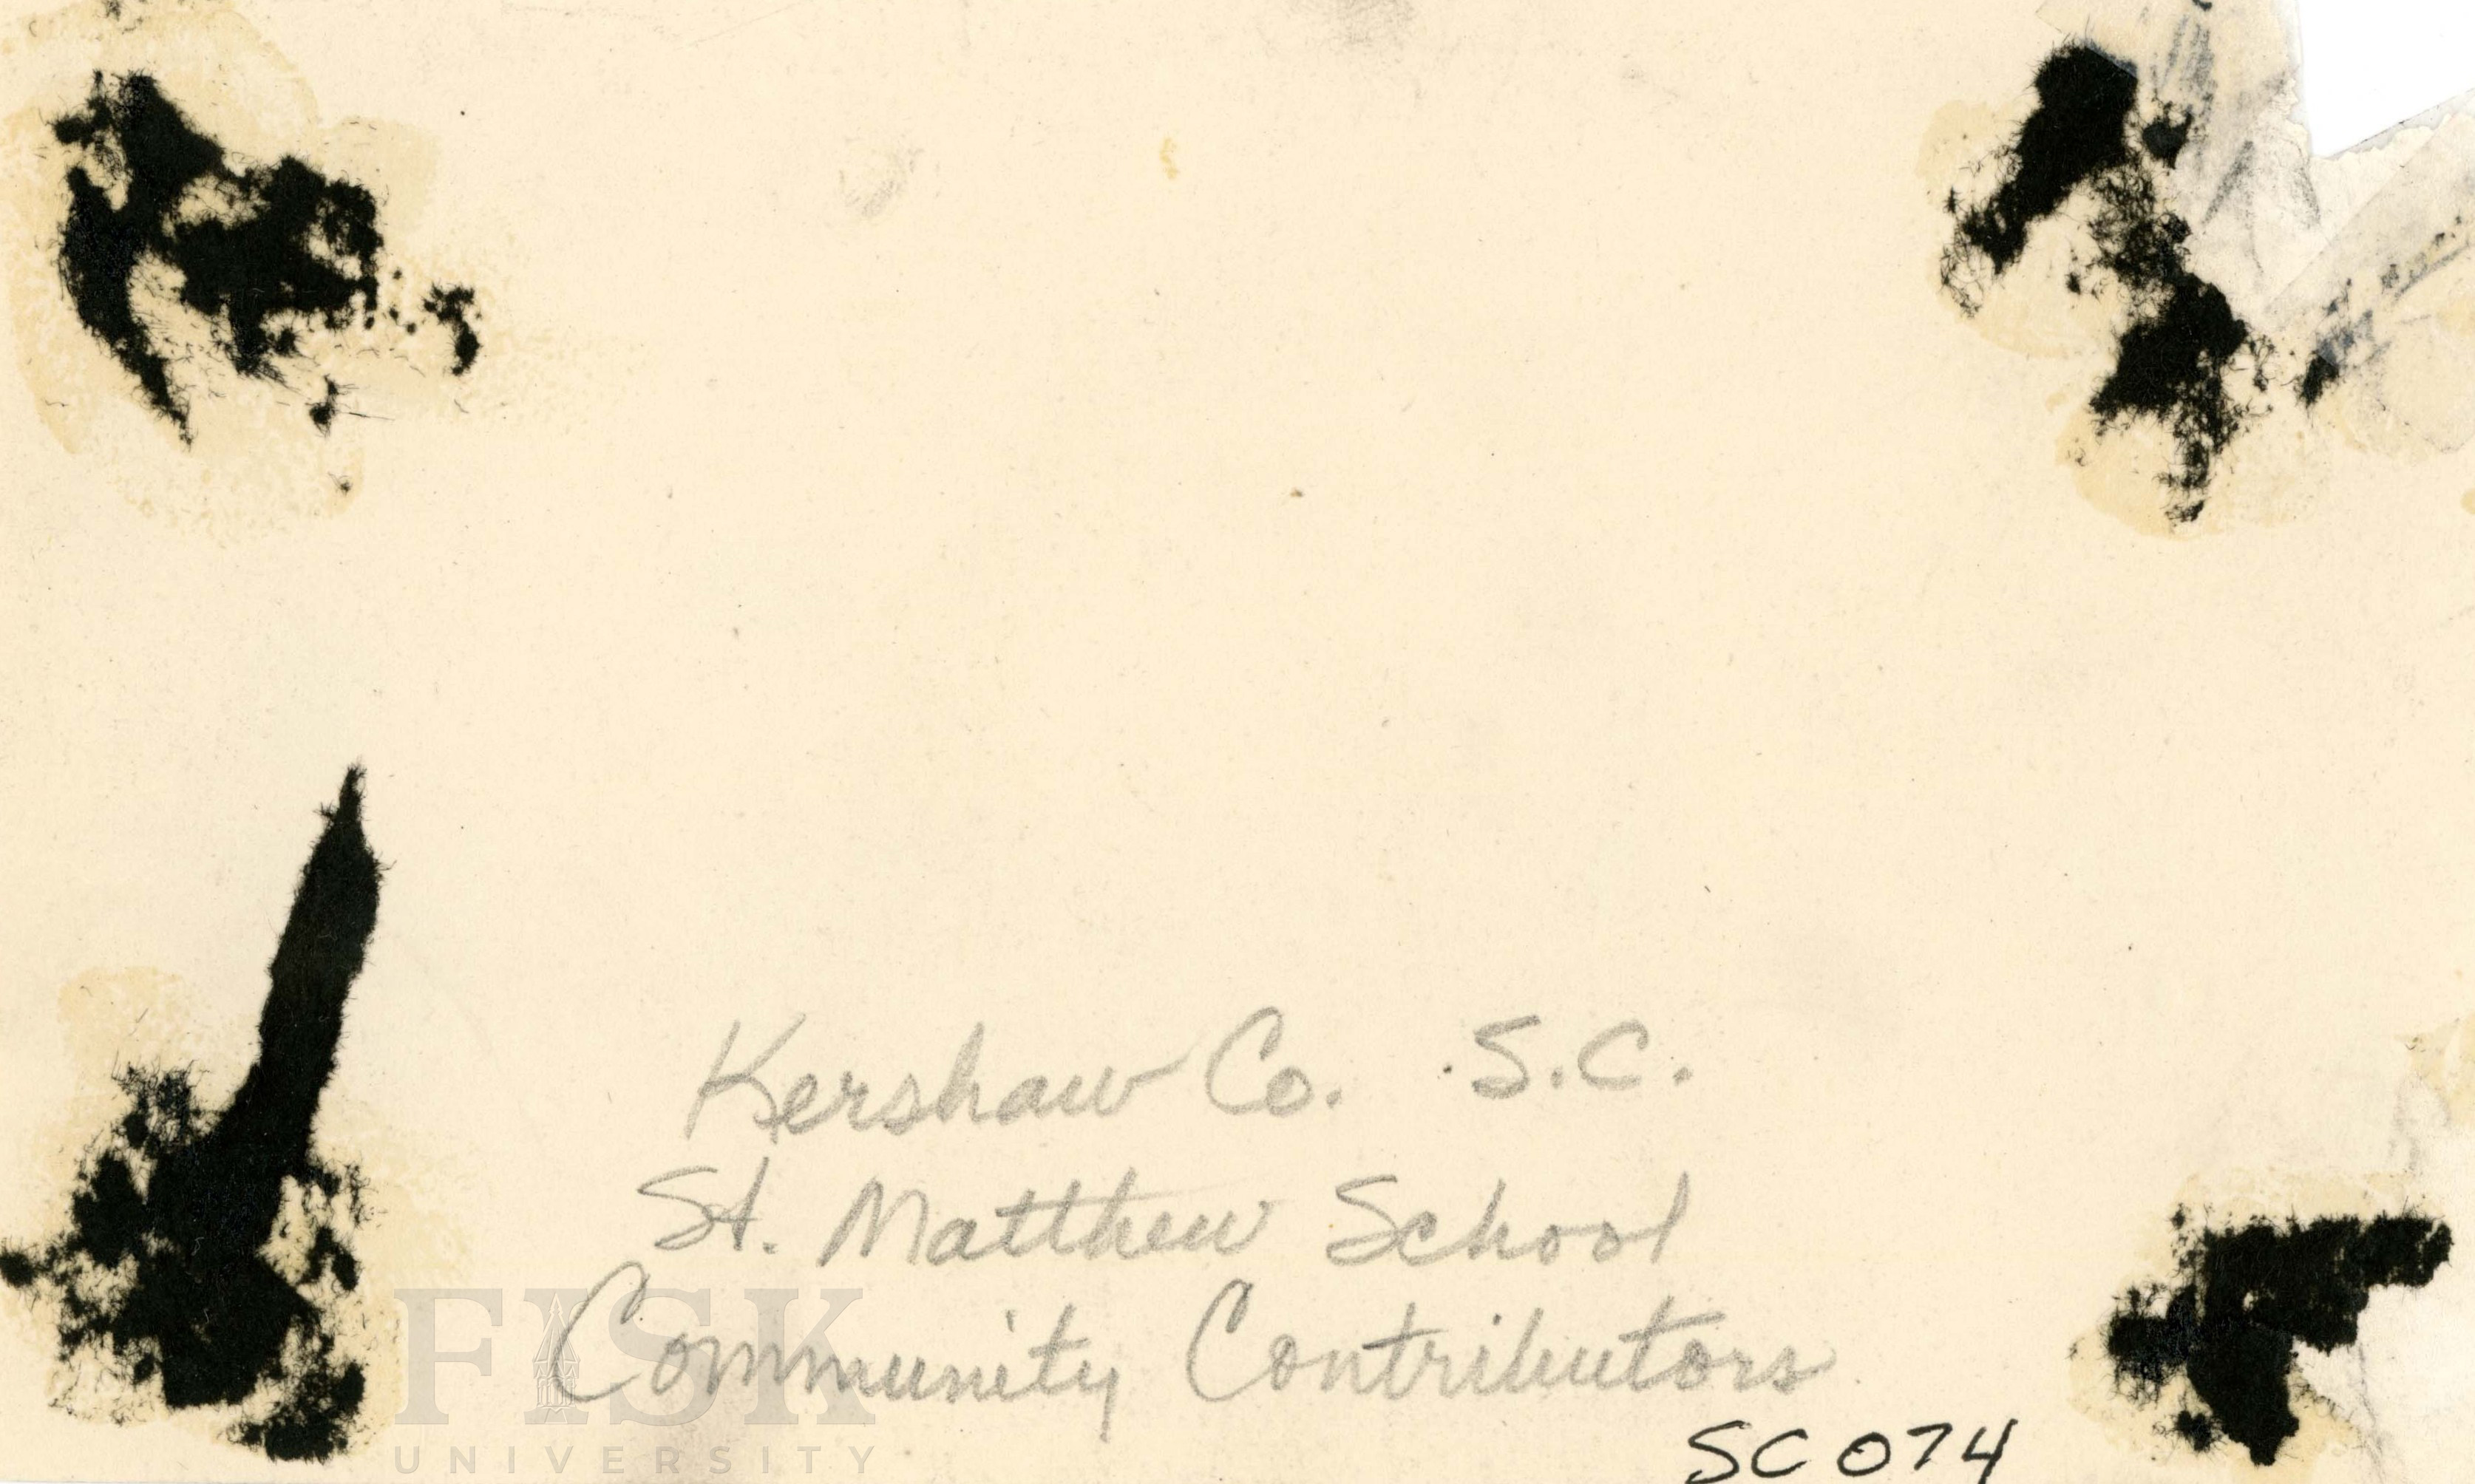 Kershaw Co. S.C.
St. Matthew School
Community Contributors
SC 074
FISK
UNIVERSITY